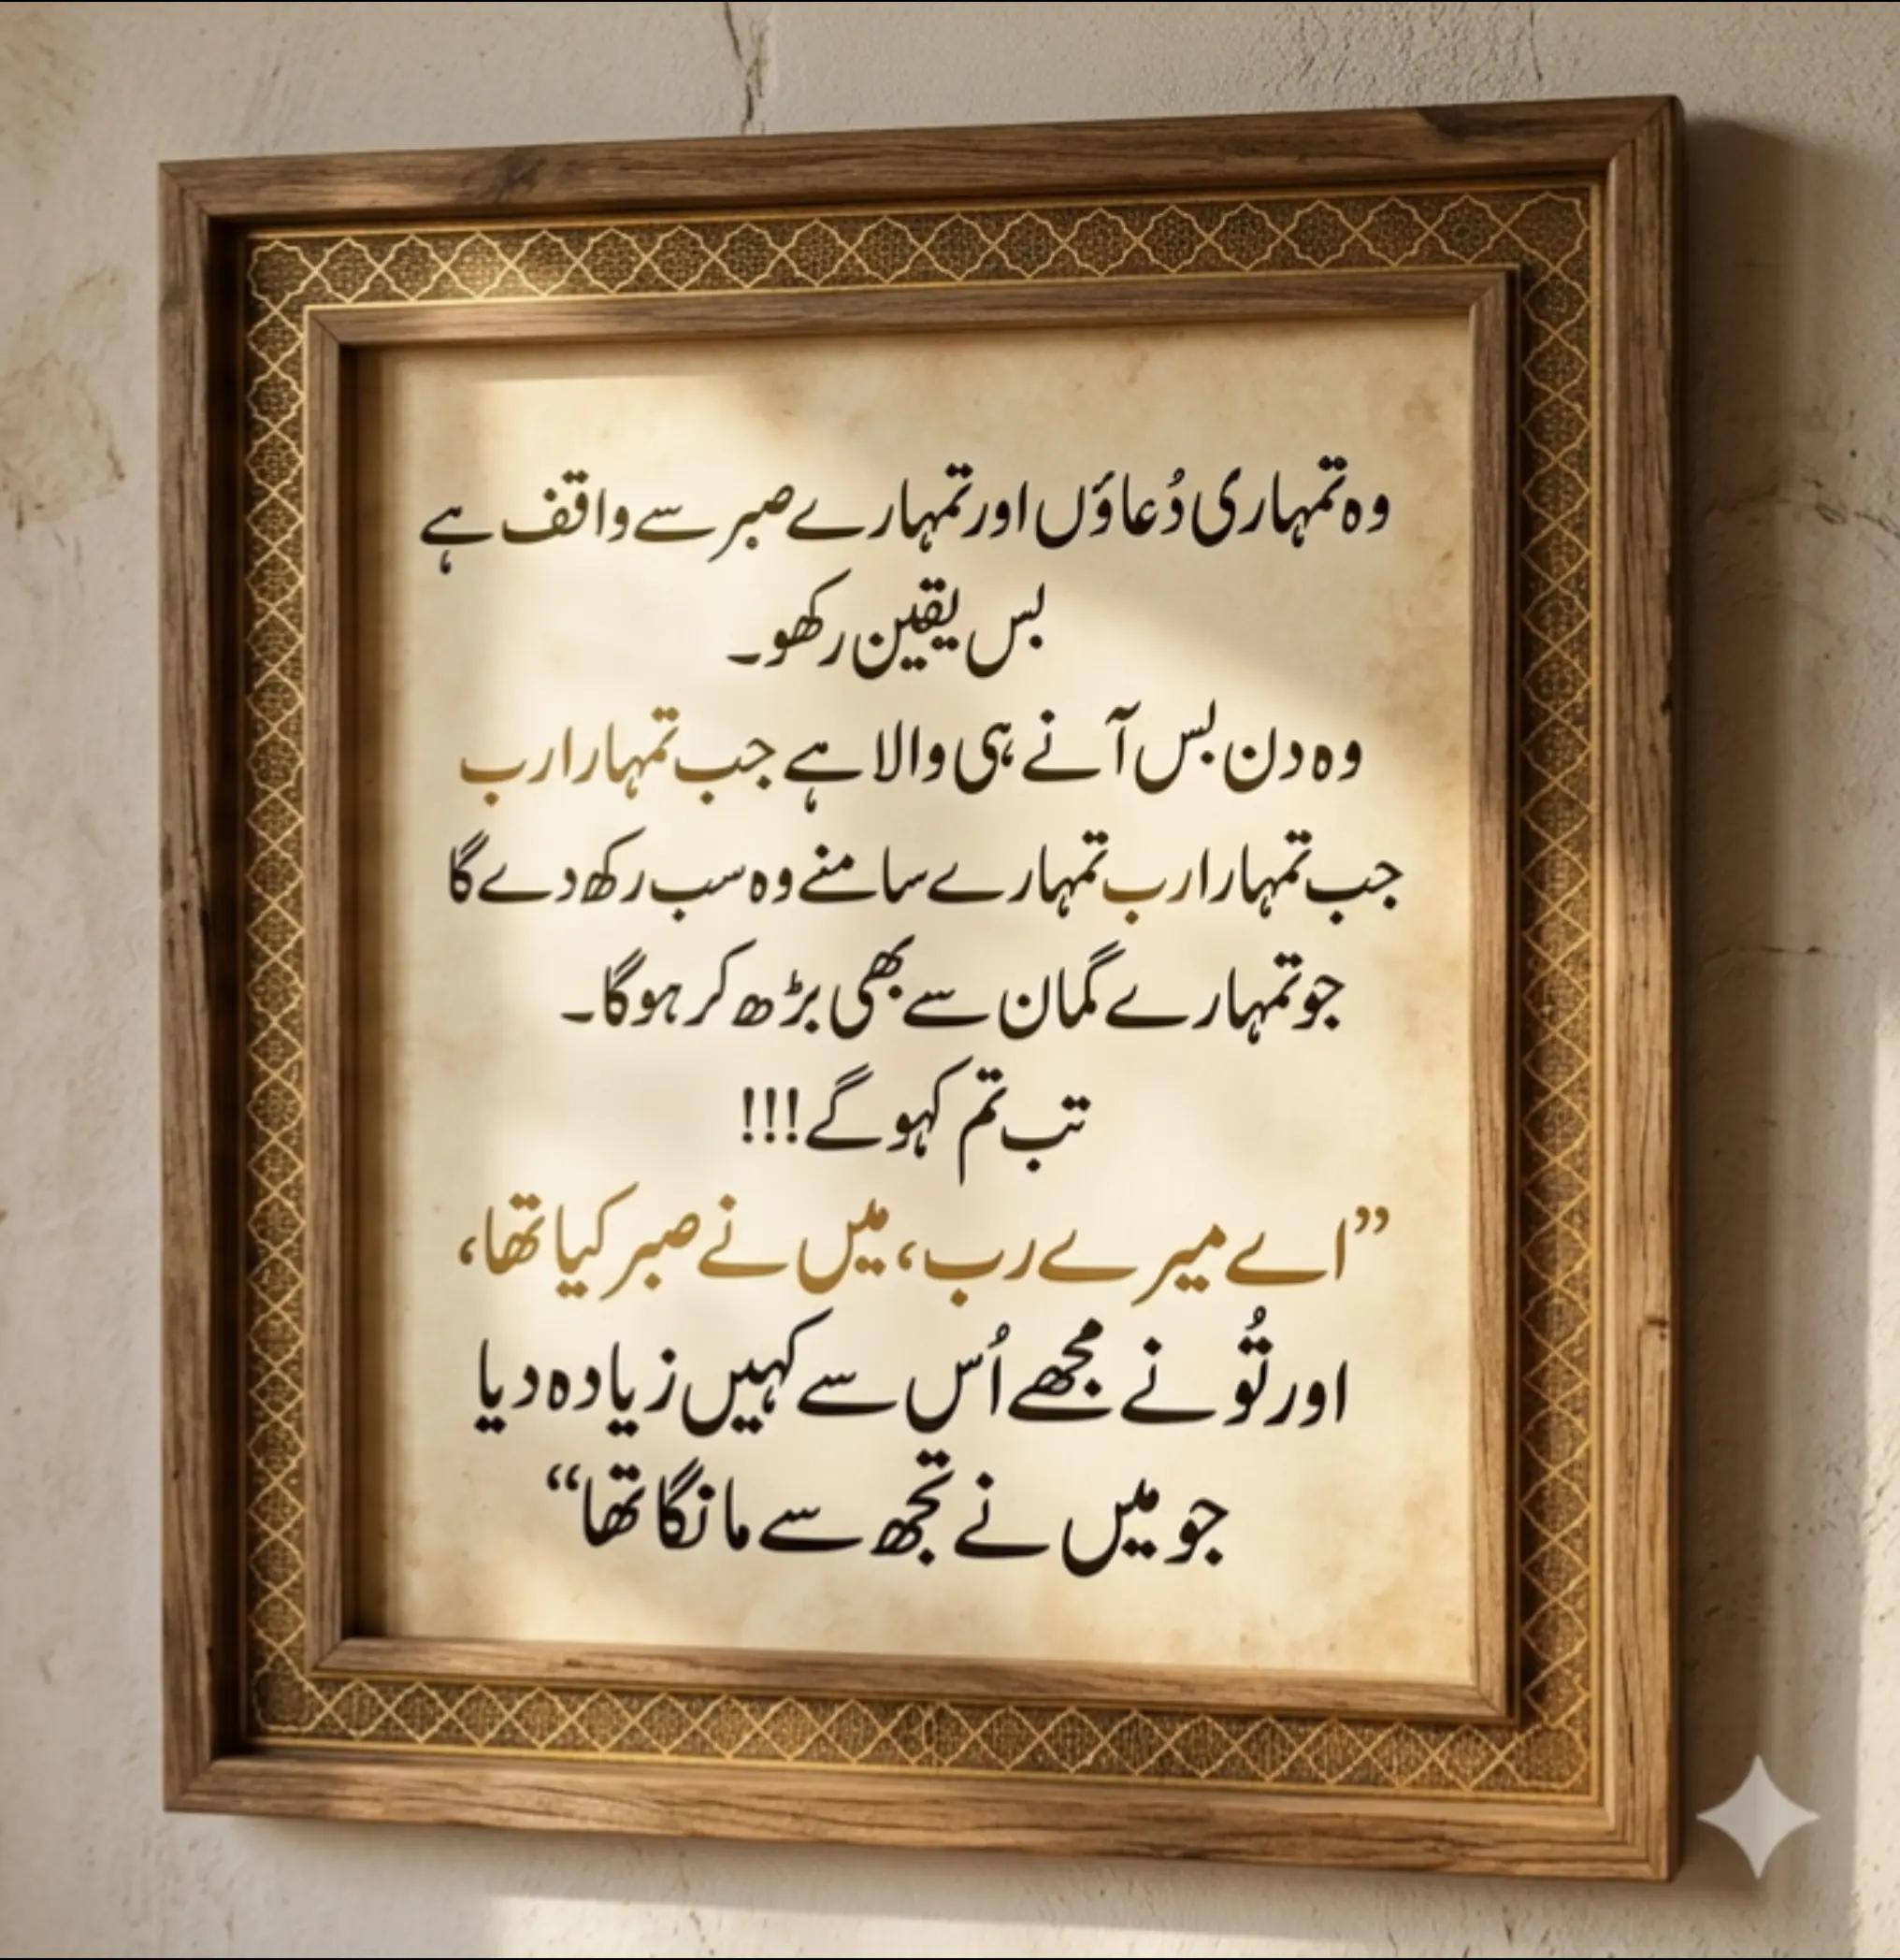 وہ تمہاری دُعاؤں اور تمہارے صبر سے واقف ہے
بس یقین رکھو۔
وہ دن بس آنے ہی والا ہے جب تمہارا رب
جب تمہارا رب تمہارے سامنے وہ سب رکھ دے گا
جو تمہارے گمان سے بھی بڑھ کر ہوگا۔
تب تم کہو گے!!!
”اے میرے رب، میں نے صبر کیا تھا،
اور تُو نے مجھے اُس سے کہیں زیادہ دیا
جو میں نے تجھ سے مانگا تھا“